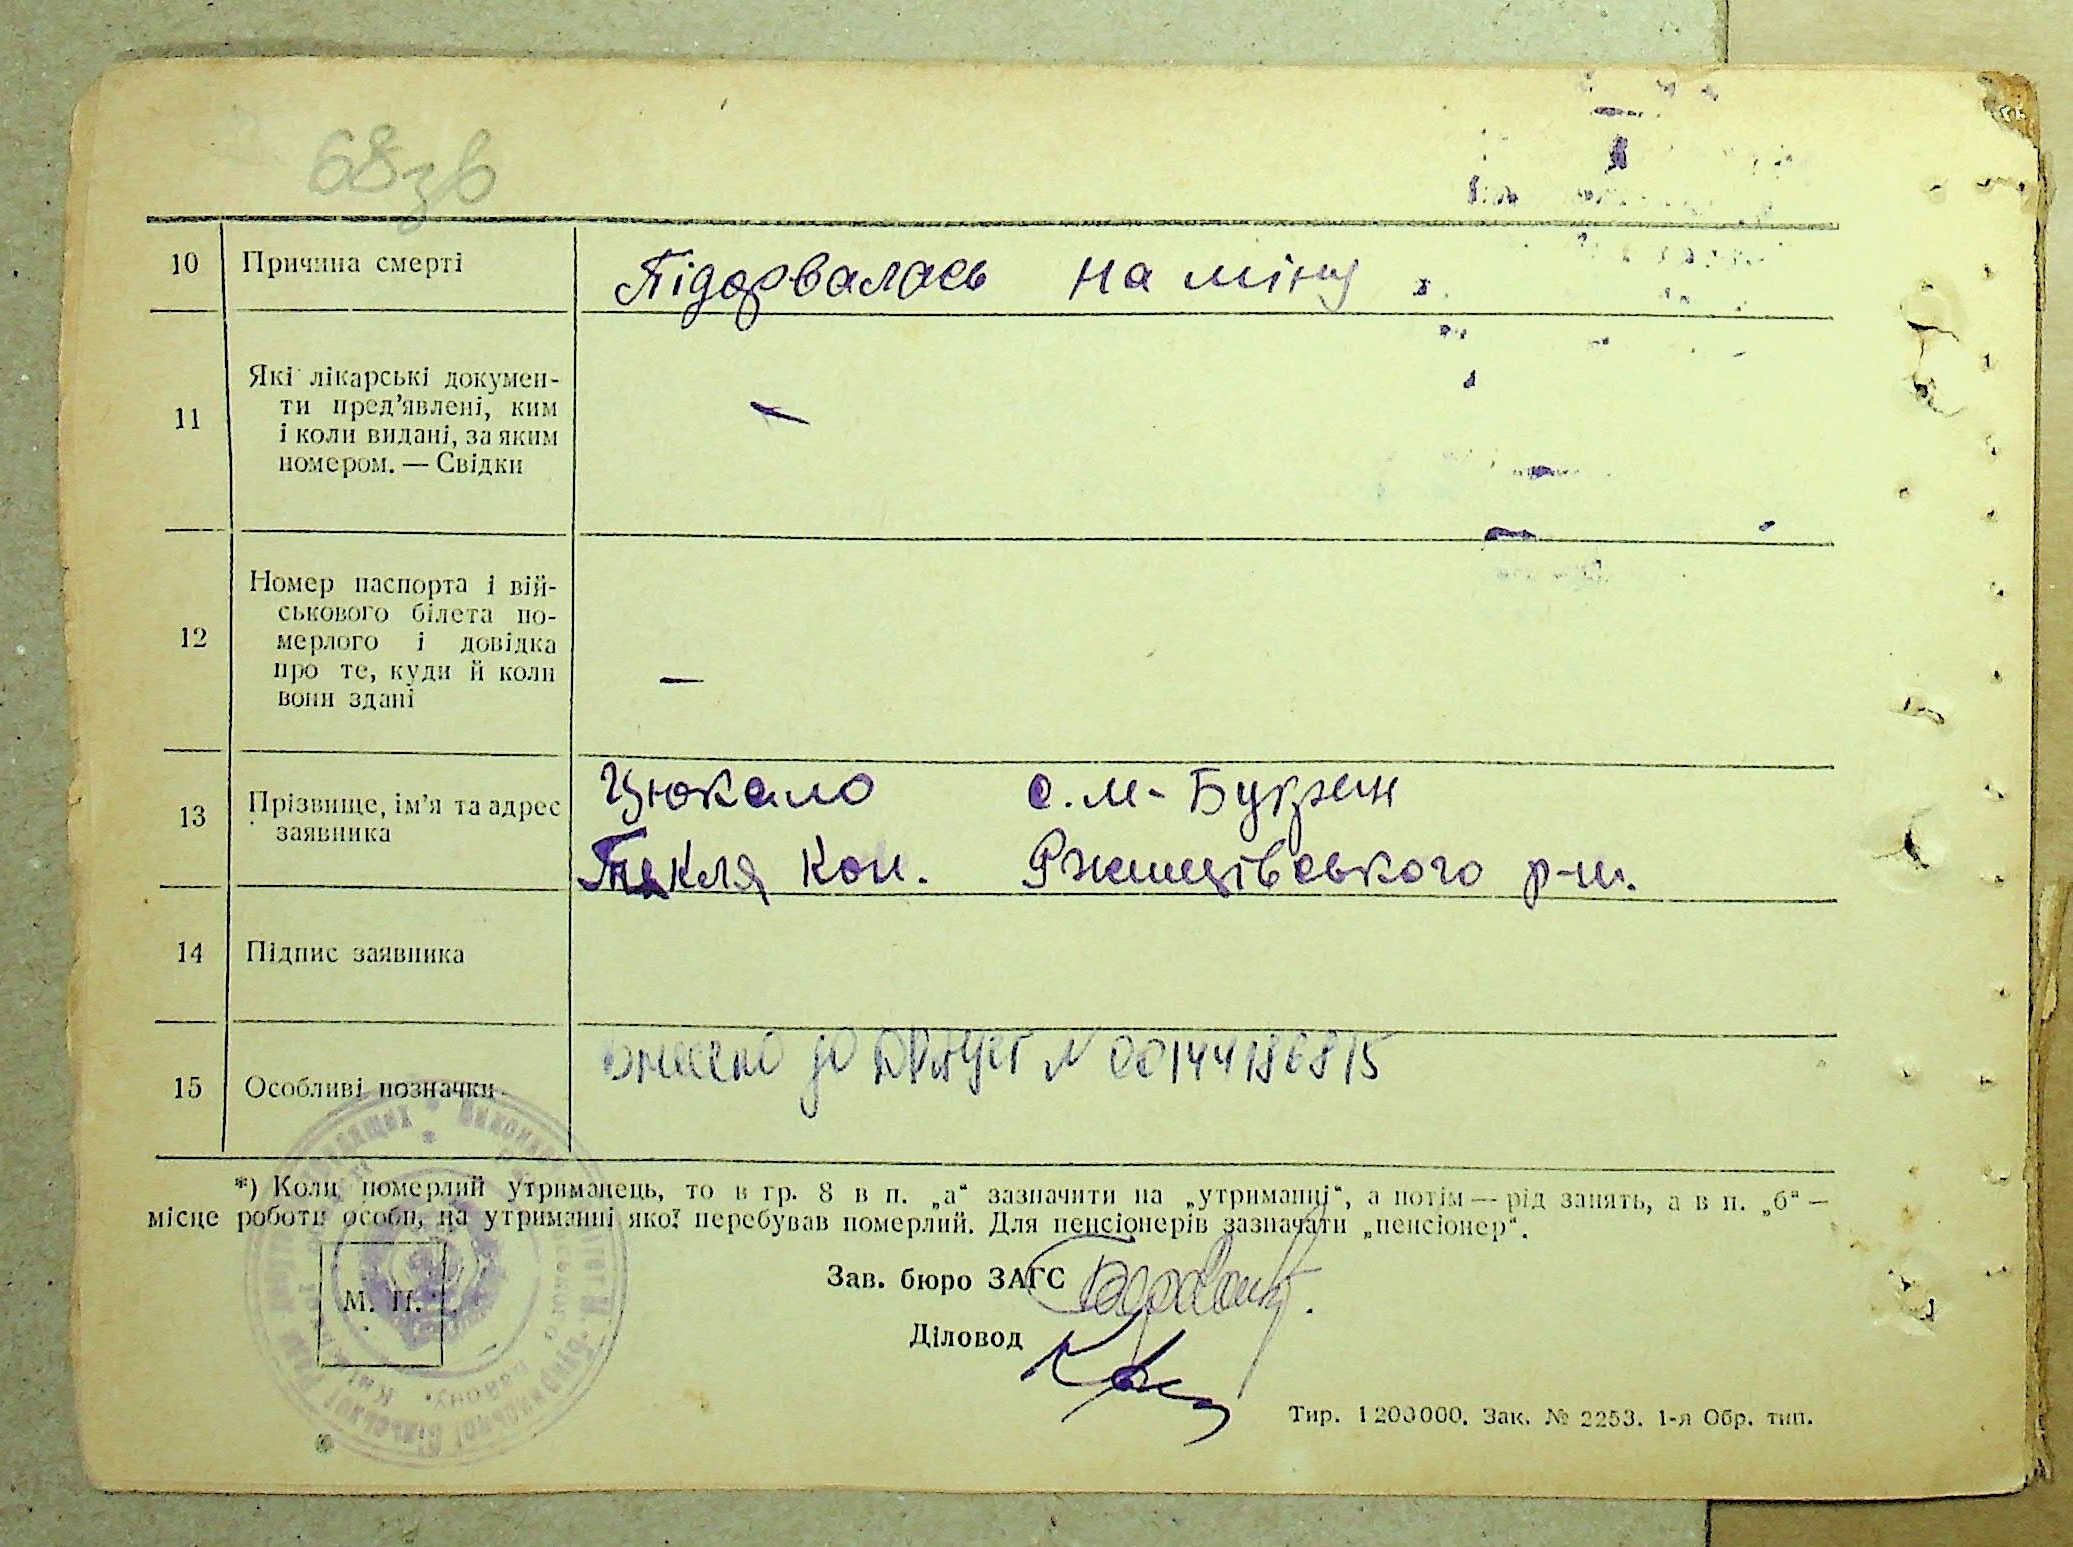 68зв
10 Причина смерті Підорвалась на міну
Які лікарські докумен-
ти пред’явлені, ким
11 і коли видані, за яким
номером. — Свідки —
Номер паспорта і вій-
ськового білета по-
12 мерлого і довідка
про те, куди й коли
вони здані —
13 Прізвище, ім’я та адрес Цюкало с. М-Букрин
заявника Текля Кон. Ржищівського р-н.
14 Підпис заявника
15 Особливі позначки Внесено до ДРАЦСГ N 00144186815
*) Коли померлий утриманець, то в гр. 8 в п. „а“ зазначити на „утриманці“, а потім — рід занять, а в п. „б“ —
місце роботи особи, на утриманні якої перебував померлий. Для пенсіонерів зазначати „пенсіонер“.
М. П.
Зав. бюро ЗАГС
Діловод
Тир. 1200000. Зак. № 2253. 1-я Обр. тип.